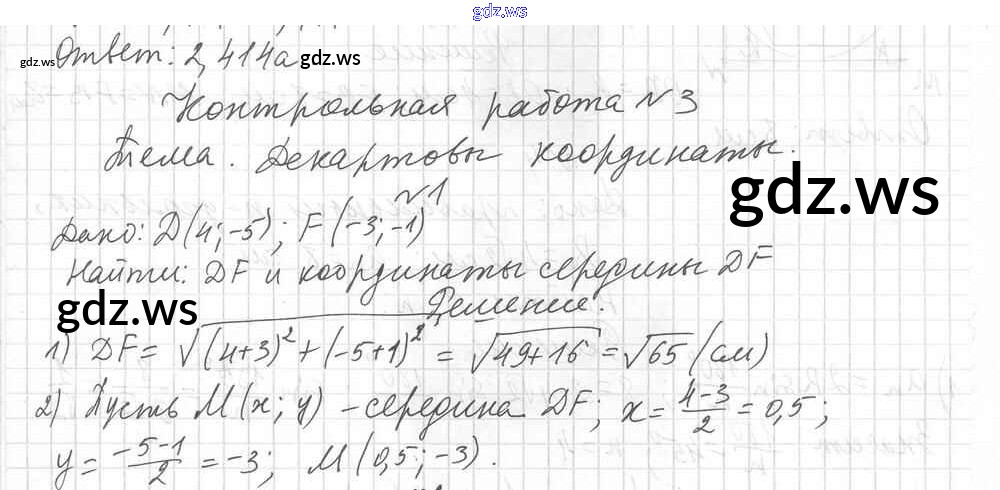 gdz.ws
gdz.ws Ответ: 2,414a gdz.ws
Контрольная работа №3
Тема. Декартовы координаты.
gdz.ws
№1
Дано: D(4;-5); F(-3;-1)
Найти: DF и координаты середины DF
gdz.ws
Решение.
1) DF = √((4+3)²+(-5+1)²) = √(49+16) = √65 (см)
2) Пусть M(x; y) – середина DF; x = (4-3)/2 = 0,5;
y = (-5-1)/2 = -3; M(0,5;-3).